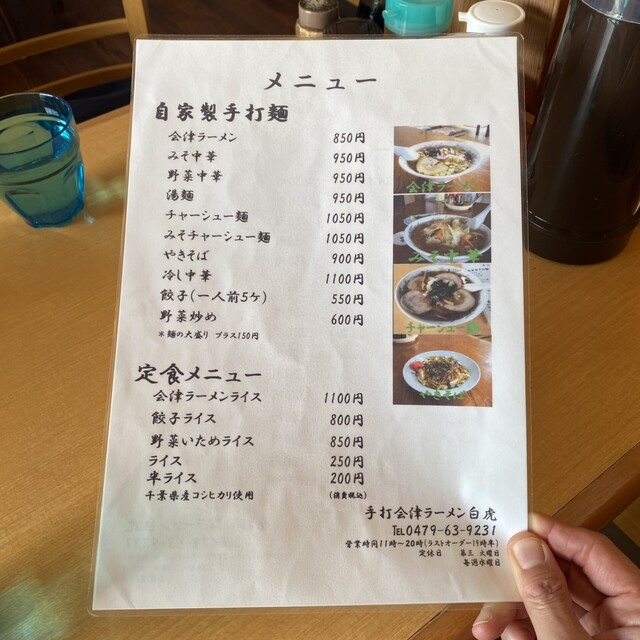 メニュー
自家製手打麺
会津ラーメン 850円
みそ中華 950円
野菜中華 950円
湯麺 950円
チャーシュー麺 1050円
みそチャーシュー麺 1050円
やきそば 900円
冷し中華 1100円
餃子(一人前5ケ) 550円
野菜炒め 600円
*麺の大盛り プラス150円
会津ラーメン
チャーシュー麺
定食メニュー
会津ラーメンライス 1100円
餃子ライス 800円
野菜いためライス 850円
ライス 250円
半ライス 200円
千葉県産コシヒカリ使用 (消費税込)
手打会津ラーメン白虎
TEL0479-63-9231
営業時間11時〜20時(ラストオーダー19時半)
定休日 第三 火曜日
毎週水曜日